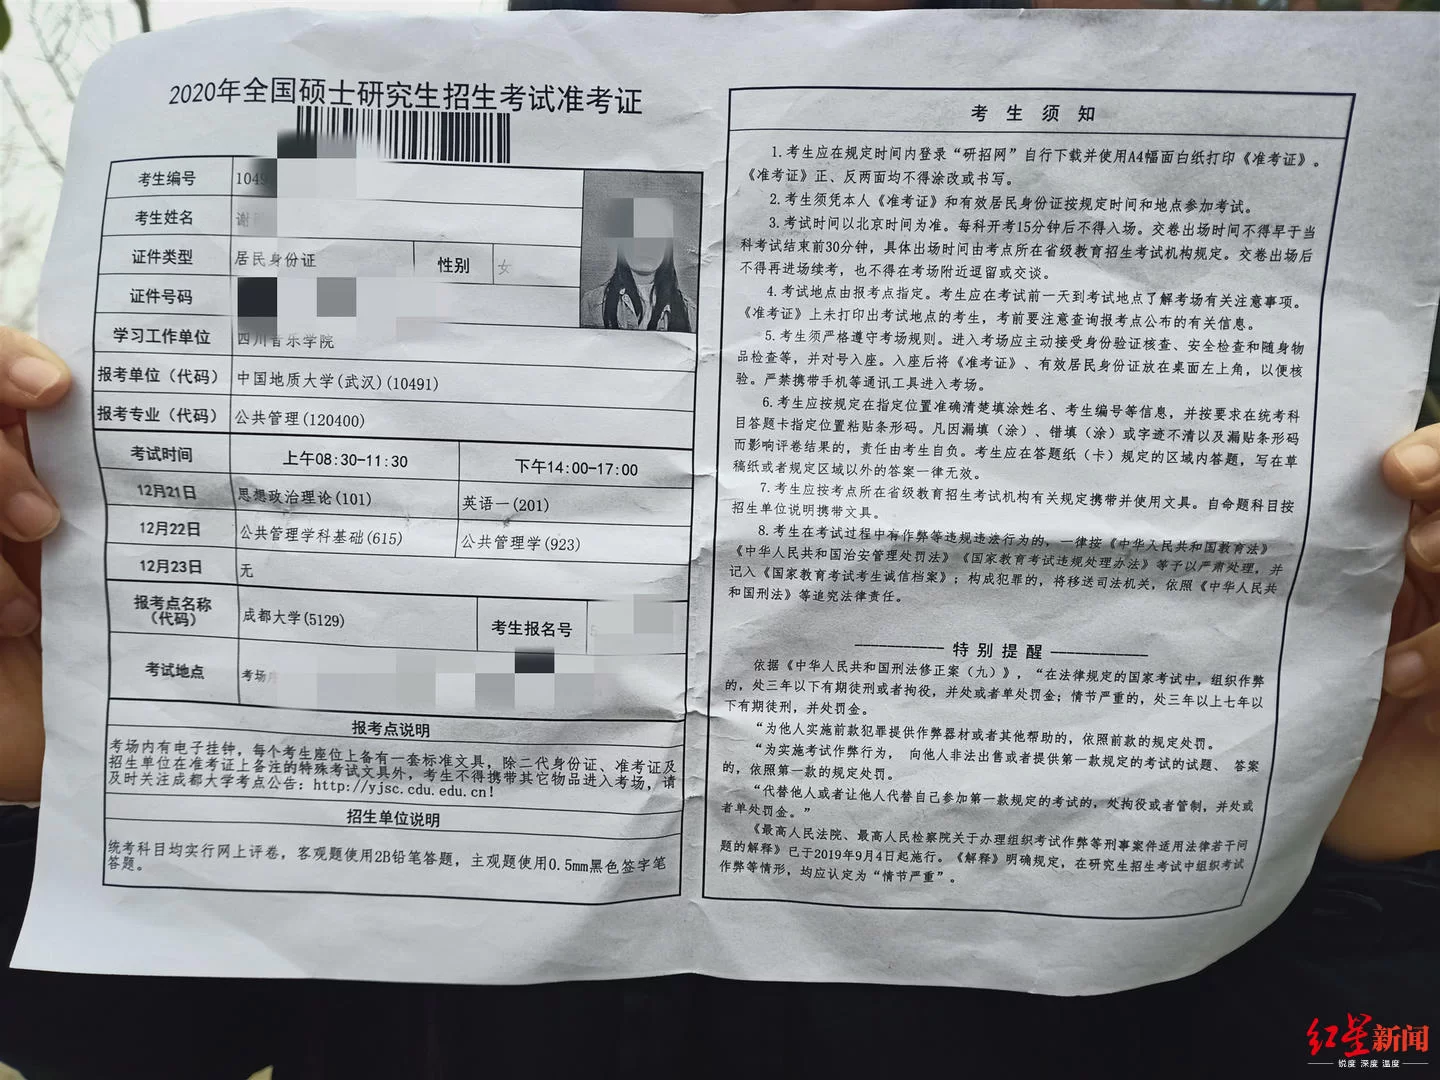 2020年全国硕士研究生招生考试准考证
考生编号 1049
考生姓名 谢
证件类型 居民身份证 性别 女
证件号码
学习工作单位 四川音乐学院
报考单位（代码） 中国地质大学(武汉)(10491)
报考专业（代码） 公共管理(120400)
考试时间 上午08:30-11:30 下午14:00-17:00
12月21日 思想政治理论(101) 英语一(201)
12月22日 公共管理学科基础(615) 公共管理学(923)
12月23日 无
报考点名称（代码） 成都大学(5129) 考生报名号
考试地点 考场
报考点说明
考场内有电子挂钟，每个考生座位上备有一套标准文具，除二代身份证、准考证及
招生单位在准考证上备注的特殊考试文具外，考生不得携带其它物品进入考场，请
及时关注成都大学考点公告：http://yjsc.cdu.edu.cn!
招生单位说明
统考科目均实行网上评卷，客观题使用2B铅笔答题，主观题使用0.5mm黑色签字笔
答题。
考 生 须 知
1.考生应在规定时间内登录“研招网”自行下载并使用A4幅面白纸打印《准考证》。
《准考证》正、反两面均不得涂改或书写。
2.考生须凭本人《准考证》和有效居民身份证按规定时间和地点参加考试。
3.考试时间以北京时间为准。每科开考15分钟后不得入场。交卷出场时间不得早于当
科考试结束前30分钟，具体出场时间由考点所在省级教育招生考试机构规定。交卷出场后
不得再进场续考，也不得在考场附近逗留或交谈。
4.考试地点由报考点指定。考生应在考试前一天到考试地点了解考场有关注意事项。
《准考证》上未打印出考试地点的考生，考前要注意查询报考点公布的有关信息。
5.考生须严格遵守考场规则。进入考场应主动接受身份验证核查、安全检查和随身物
品检查等，并对号入座。入座后将《准考证》、有效居民身份证放在桌面左上角，以便核
验。严禁携带手机等通讯工具进入考场。
6.考生应按规定在指定位置准确清楚填涂姓名、考生编号等信息，并按要求在统考科
目答题卡指定位置粘贴条形码。凡因漏填（涂）、错填（涂）或字迹不清以及漏贴条形码
而影响评卷结果的，责任由考生自负。考生应在答题纸（卡）规定的区域内答题，写在草
稿纸或者规定区域以外的答案一律无效。
7.考生应按考点所在省级教育招生考试机构有关规定携带并使用文具。自命题科目按
招生单位说明携带文具。
8.考生在考试过程中有作弊等违规违法行为的，一律按《中华人民共和国教育法》
《中华人民共和国治安管理处罚法》《国家教育考试违规处理办法》等予以严肃处理，并
记入《国家教育考试考生诚信档案》；构成犯罪的，将移送司法机关，依照《中华人民共
和国刑法》等追究法律责任。
特别提醒
依据《中华人民共和国刑法修正案（九）》，“在法律规定的国家考试中，组织作弊
的，处三年以下有期徒刑或者拘役，并处或者单处罚金；情节严重的，处三年以上七年以
下有期徒刑，并处罚金。
“为他人实施前款犯罪提供作弊器材或者其他帮助的，依照前款的规定处罚。
“为实施考试作弊行为， 向他人非法出售或者提供第一款规定的考试的试题、 答案
的，依照第一款的规定处罚。
“代替他人或者让他人代替自己参加第一款规定的考试的，处拘役或者管制，并处或
者单处罚金。”
《最高人民法院、最高人民检察院关于办理组织考试作弊等刑事案件适用法律若干问
题的解释》已于2019年9月4日起施行。《解释》明确规定，在研究生招生考试中组织考试
作弊等情形，均应认定为“情节严重”。
红星新闻
锐度 深度 温度